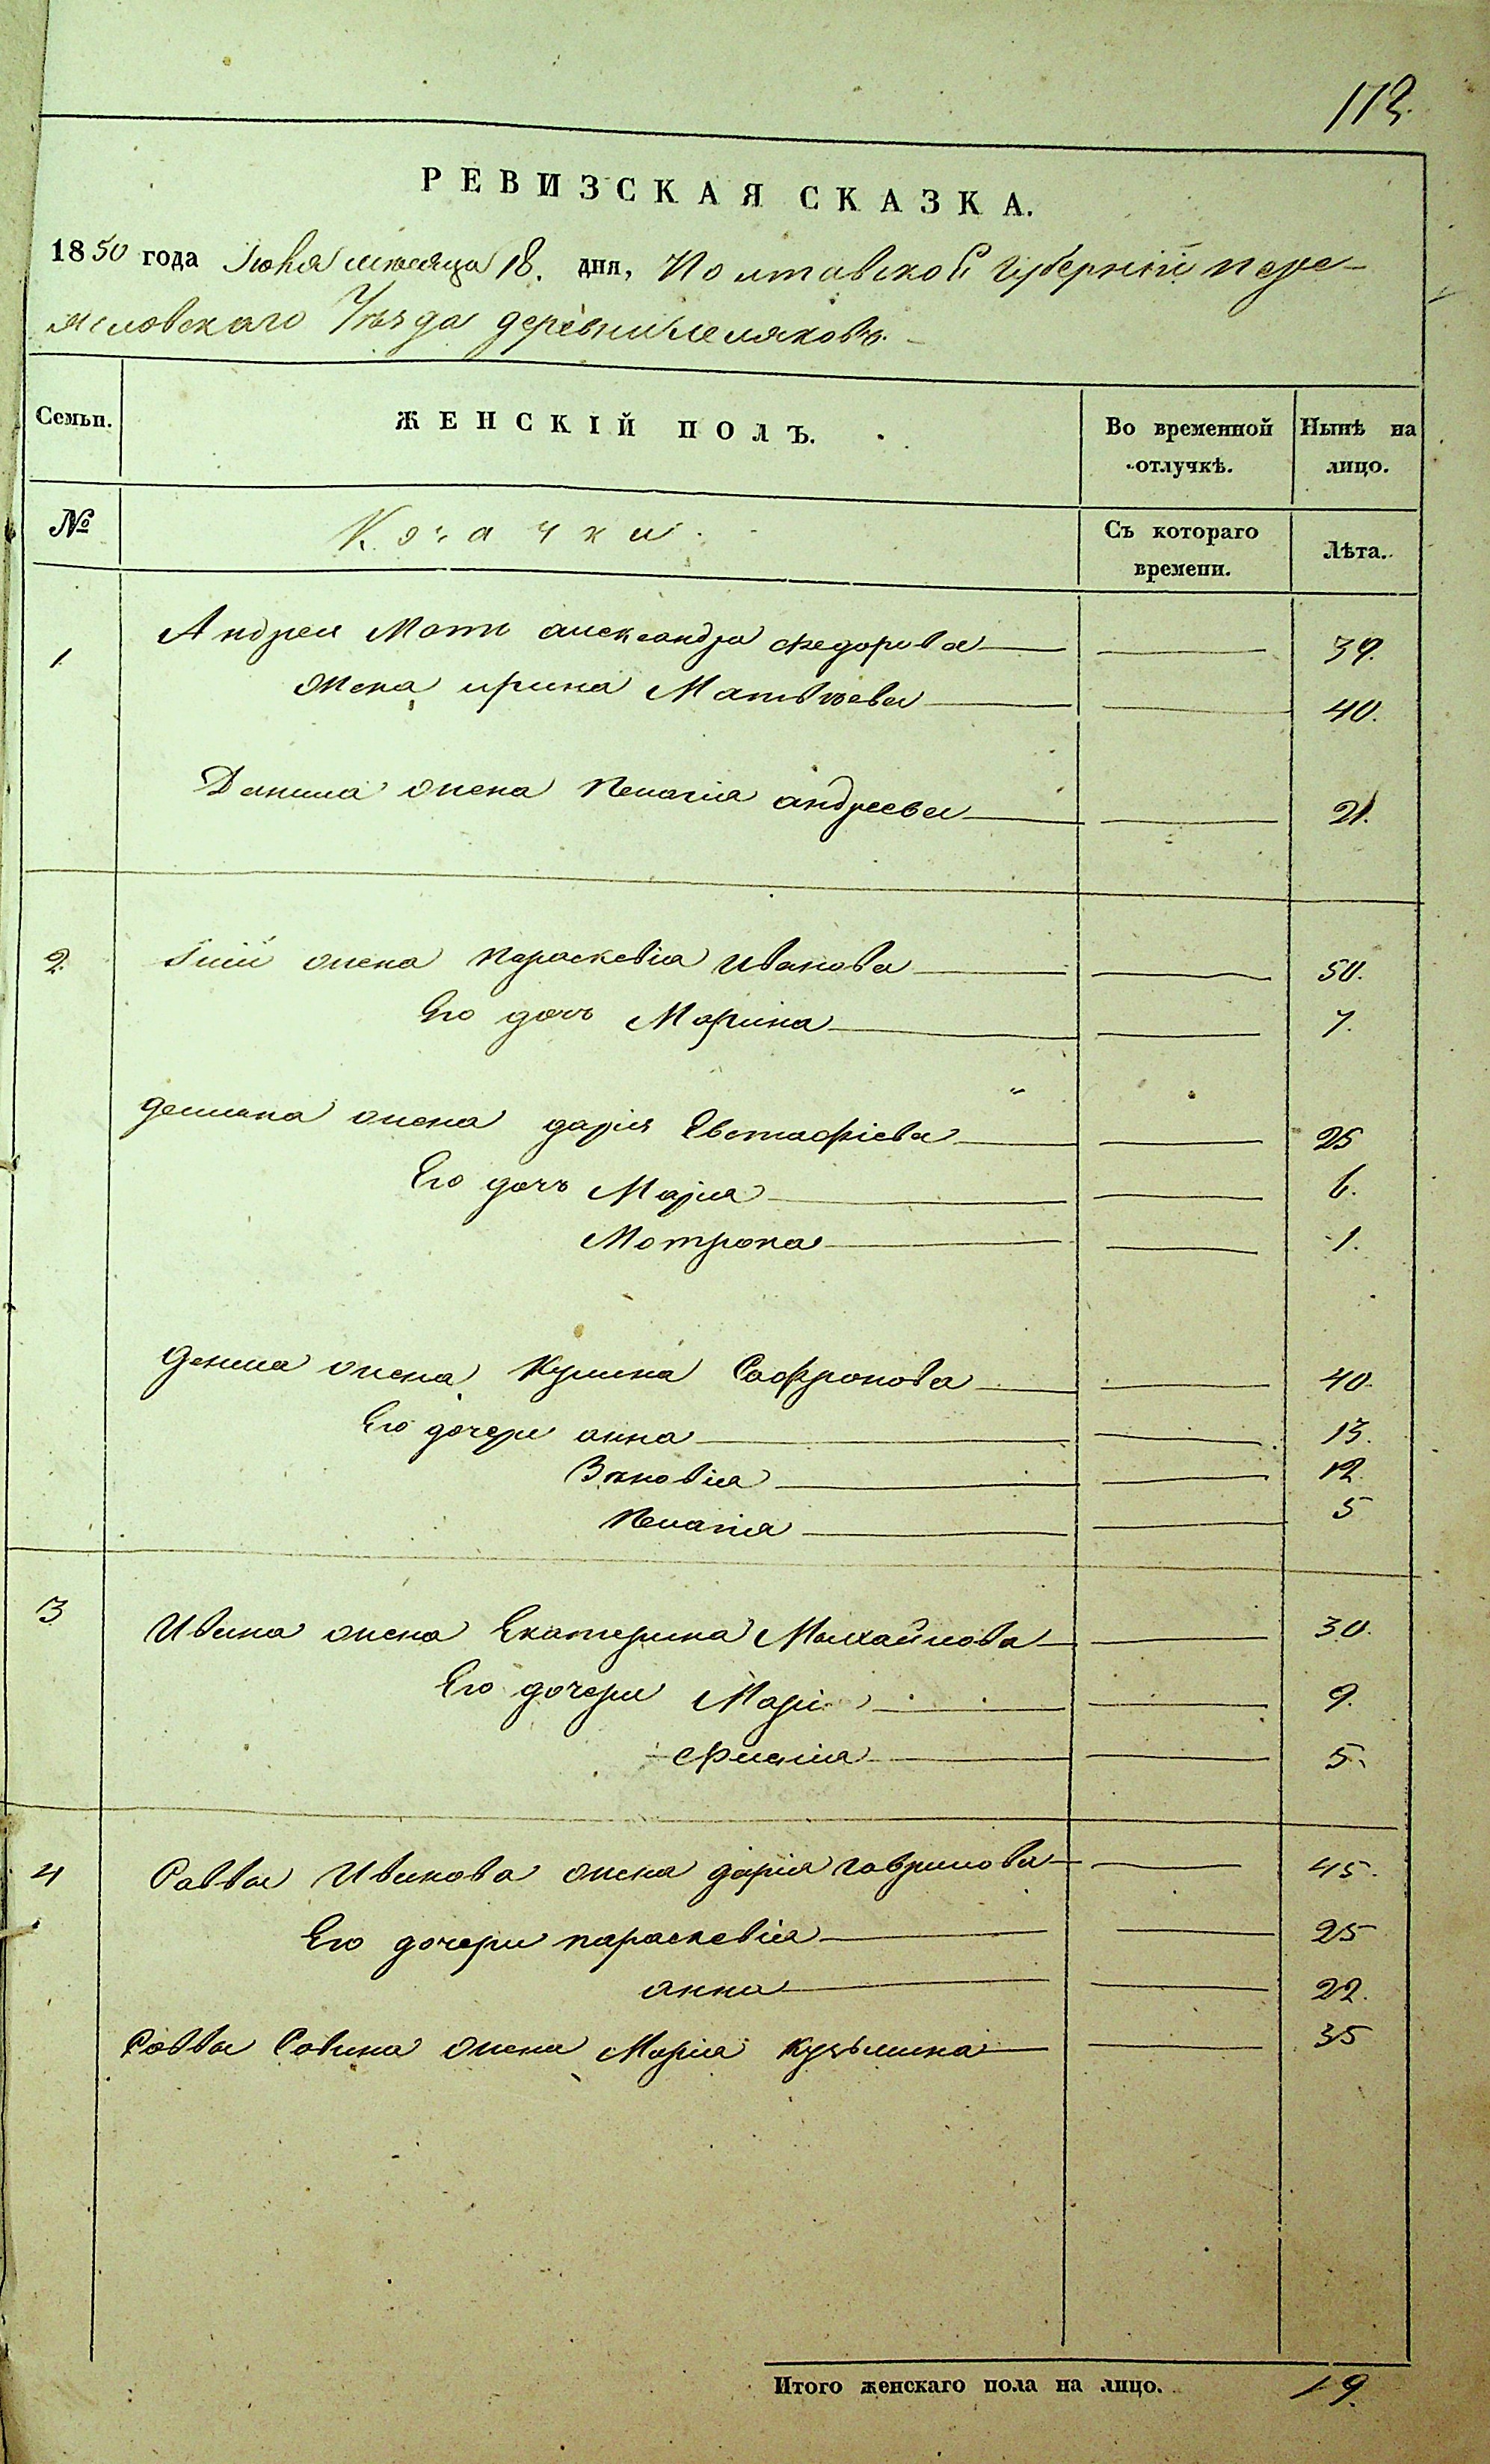 112.
РЕВИЗСКАЯ СКАЗКА.
1850 года Іюня месяца 18. дня, Полтавской Губерніи пере-
яславскаго Уѣзда деревни Лемляковъ.
Семьи. ЖЕНСКІЙ ПОЛЪ. Во временной отлучкѣ. Нынѣ на лицо.
№ Козачки. Съ котораго времени. Лѣта.
1 Андрея Мать александра Федорова 39.
Жена ирина Матвѣева 40.
Данила жена Пелагія андреева 21.
2. жена параскевіа иванова 50.
Его дочь Марина 7.
демьяна жена дарія Евстафіева 25
Его дочь Марія 6.
Мотрона 1.
дениса жена Кулина Сафронова 40.
Его дочери анна 13.
Зѣновіа 12.
Пелагіа 5
3 Ивана жена Екатерина Михайлова 30.
Его дочери Марі 9.
5.
4 Саввы Иванова жена даріа гаврилова 45.
Его дочери параскевіа 25
анна 22.
Саввы Савина жена Маріа кузьмина 35
Итого женскаго пола на лицо. 19.